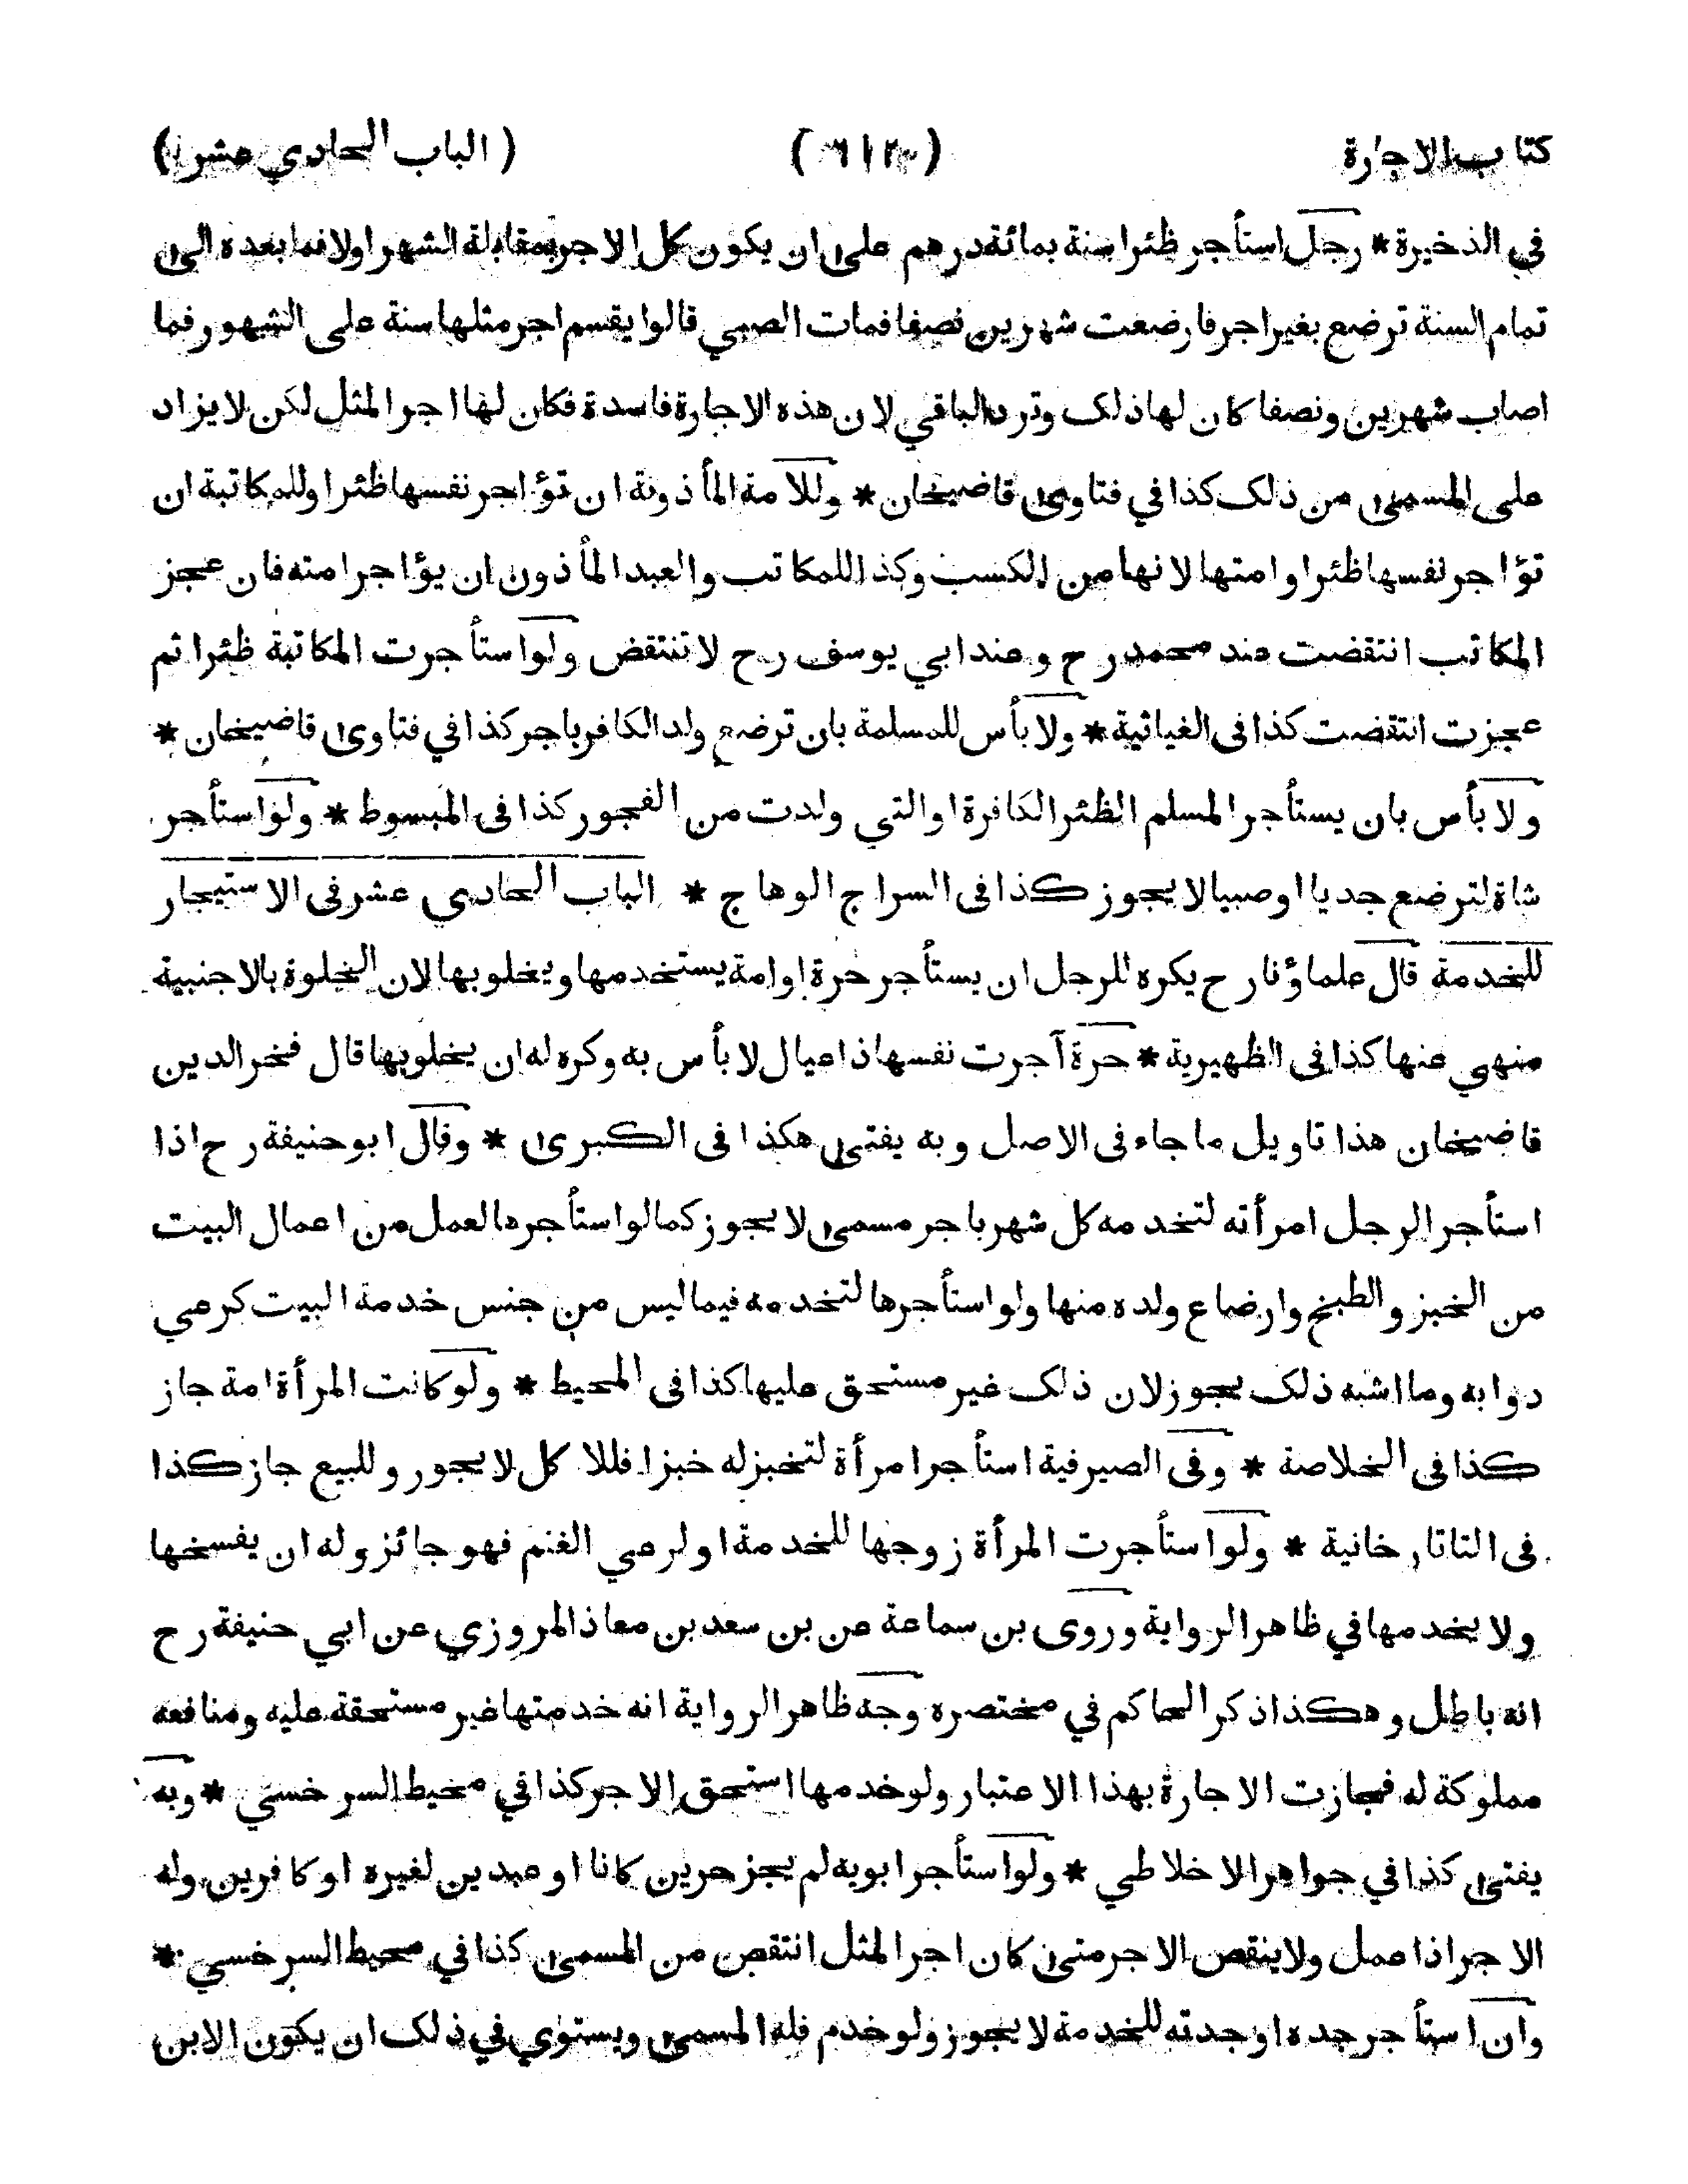 كتاب الاجارة ( الباب الحادي عشر )
في الذخيرة * رجل استأجر ظئرا سنة بمائة درهم على ان يكون كل الاجر بمقابلة الشهر اولا فما بعده الى
تمام السنة ترضع بغير اجر فارضعت شهرين نصفا فمات الصبي قالوا يقسم اجر مثلها سنة على الشهور فما
اصاب شهرين ونصفا كان لها ذلك وترد الباقي لان هذه الاجارة فاسدة فكان لها اجر المثل لكن لا يزاد
على المسمى من ذلك كذا في فتاوى قاضيخان * وللامة المأذونة ان تؤاجر نفسها ظئرا وللمكاتبة ان
تؤاجر نفسها ظئرا وامتها لانها من الكسب وكذا للمكاتب والعبد المأذون ان يؤاجر امته فان عجز
المكاتب انتقضت عند محمد رح وعند ابي يوسف رح لا تنتقض ولو استأجرت المكاتبة ظئرا ثم
عجزت انتقضت كذا فى الغياثية * ولا بأس للمسلمة بان ترضع ولد الكافر باجر كذا في فتاوى قاضيخان *
ولا بأس بان يستأجر المسلم الظئر الكافرة او التي ولدت من الفجور كذا فى المبسوط * ولو استأجر
شاة لترضع جديا او صبيا لا يجوز كذا فى السراج الوهاج * الباب الحادى عشر فى الاستيجار
للخدمة قال علماؤنا رح يكره للرجل ان يستأجر حرة او امة يستخدمها ويخلو بها لان الخلوة بالاجنبية
منهي عنها كذا فى الظهيرية * حرة آجرت نفسها ذا عيال لا بأس به وكره له ان يخلو بها قال فخر الدين
قاضيخان هذا تاويل ما جاء فى الاصل وبه يفتى هكذا فى الكبرى * وقال ابو حنيفة رح اذا
استأجر الرجل امرأته لتخدمه كل شهر باجر مسمى لا يجوز كما لو استأجرها لعمل من اعمال البيت
من الخبز والطبخ وارضاع ولده منها ولو استأجرها لتخدمه فيما ليس من جنس خدمة البيت كرعي
دوابه وما اشبه ذلك يجوز لان ذلك غير مستحق عليها كذا فى المحيط * ولو كانت المرأة امة جاز
كذا فى الخلاصة * وفى الصيرفية استأجر امرأة لتخبز له خبزا فللاكل لا يجوز وللبيع جاز كذا
فى التاتارخانية * ولو استأجرت المرأة زوجها للخدمة او لرعي الغنم فهو جائز وله ان يفسخها
ولا يخدمها في ظاهر الرواية وروى بن سماعة عن بن سعد بن معاذ المروزي عن ابي حنيفة رح
انه باطل وهكذا ذكر الحاكم في مختصره وجه ظاهر الرواية انه خدمتها غير مستحقة عليه ومنافعه
مملوكة له فجازت الاجارة بهذا الاعتبار ولو خدمها استحق الاجر كذا في محيط السرخسي * وبه
يفتى كذا في جواهر الاخلاطي * ولو استأجر ابويه لم يجز حرين كانا او عبدين لغيره او كافرين وله
الاجر اذا عمل ولا ينقص الاجر متى كان اجر المثل انتقص من المسمى كذا في محيط السرخسي *
وان استأجر جده او جدته للخدمة لا يجوز ولو خدم فله المسمى ويستوي في ذلك ان يكون الابن